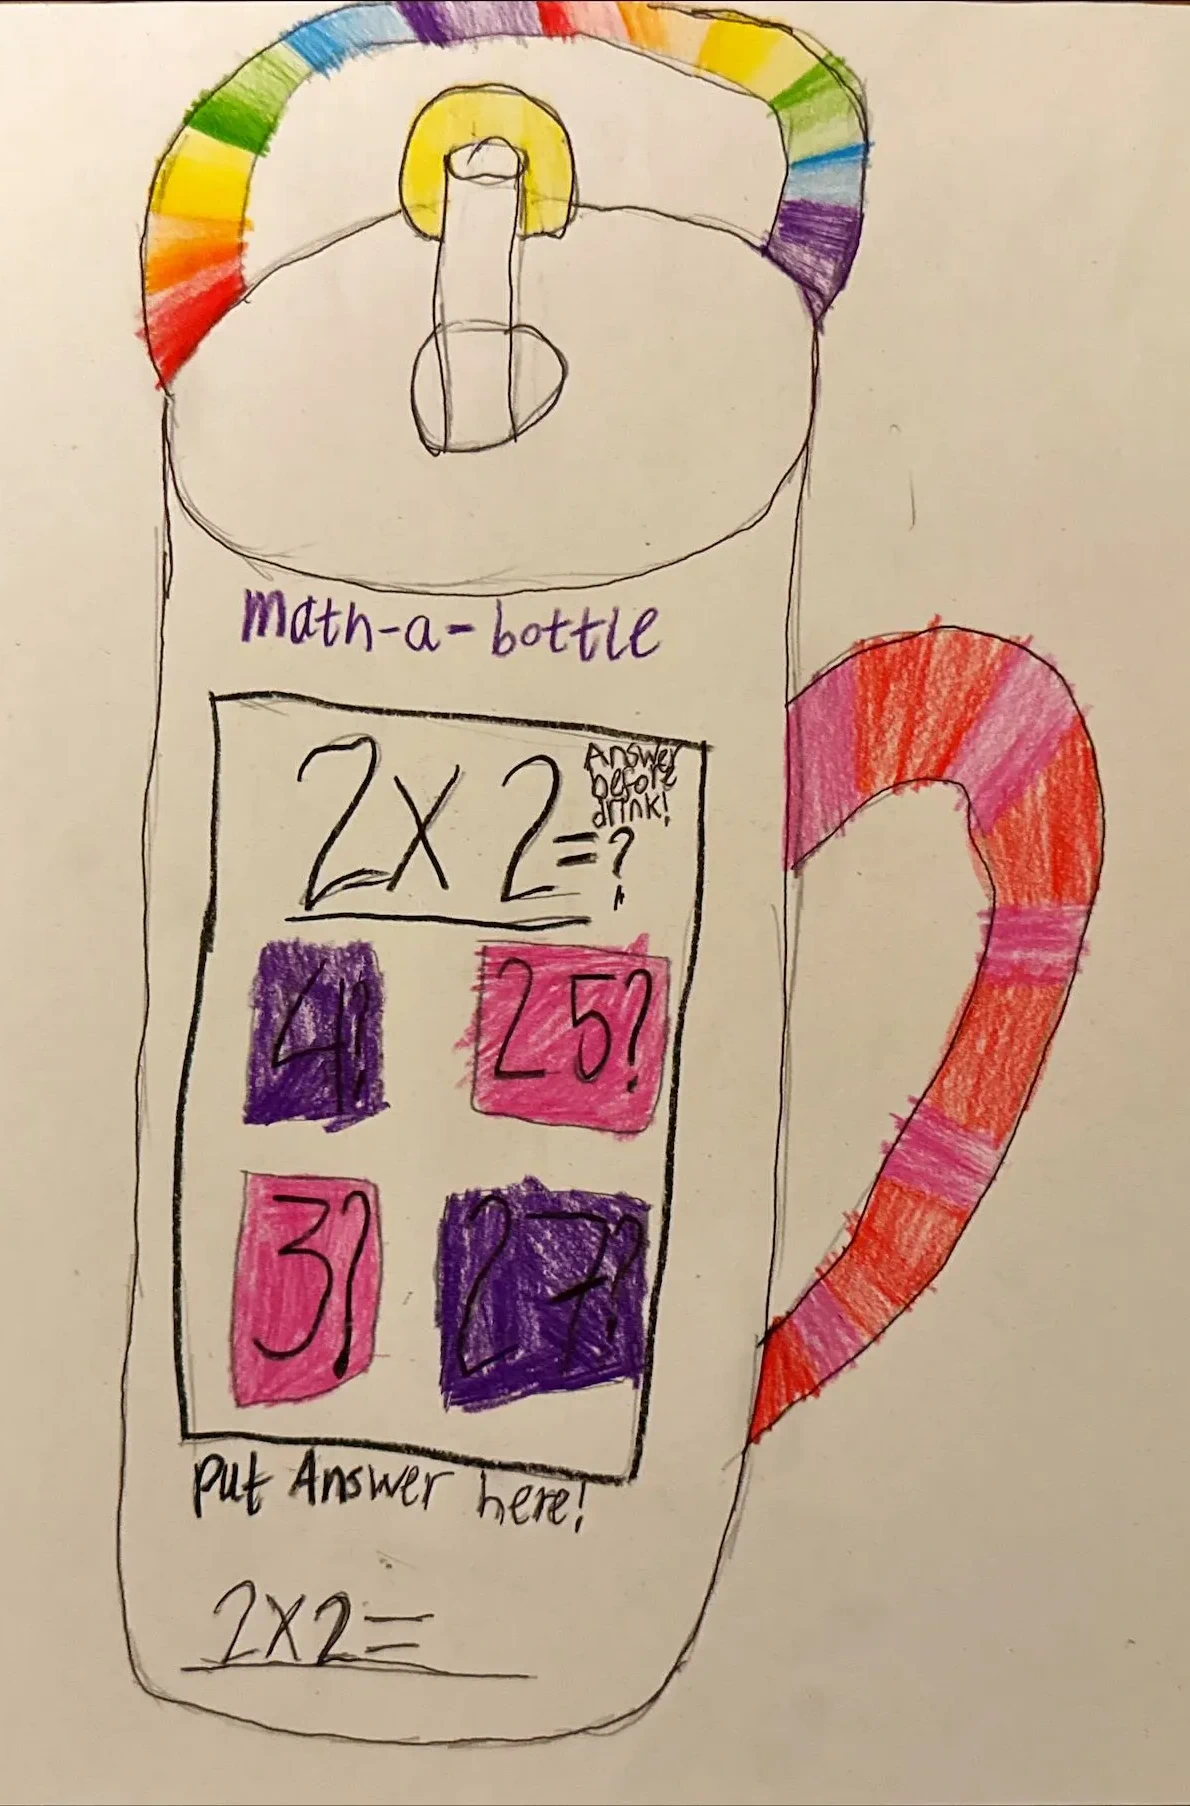 math-a-bottle
2x2=?
Answer
before
drink!
4? 25?
3? 27?
put Answer here!
2x2=